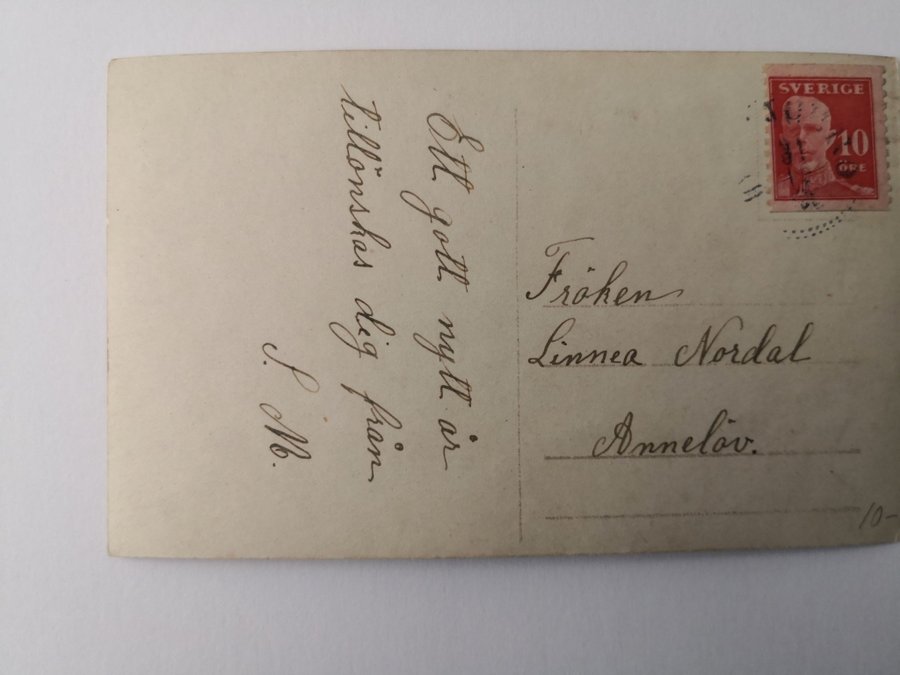 Ett gott nytt år
tillönskas dig från
S. M.
SVERIGE
10
ÖRE
31
Fröken
Linnea Nordal
Annelöv.
10-